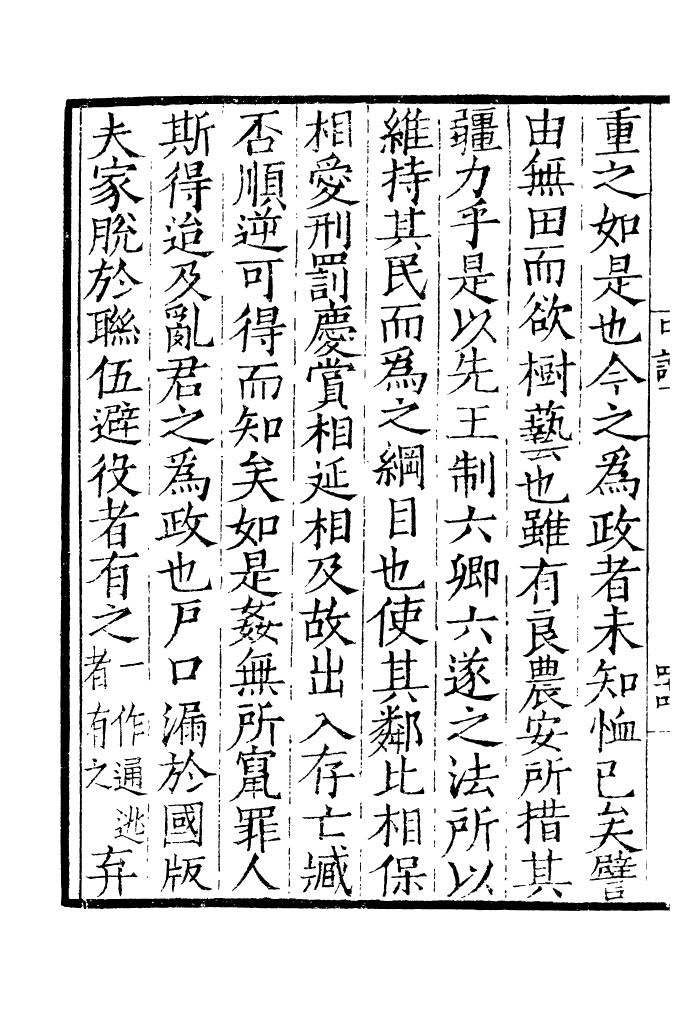 重之如是也今之爲政者未知恤已矣譬
由無田而欲樹藝也雖有良農安所措其
疆力乎是以先王制六卿六遂之法所以
維持其民而爲之綱目也使其鄰比相保
相愛刑罰慶賞相延相及故出入存亡臧
否順逆可得而知矣如是姦無所竄罪人
斯得迨及亂君之爲政也戶口漏於國版
夫家脫於聯伍避役者有之一作通逃者有之弃